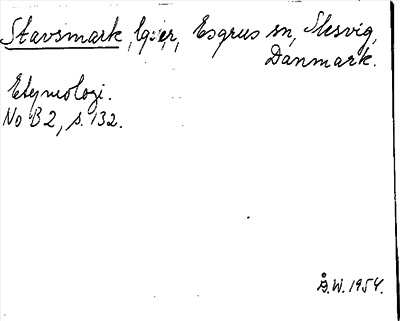 Stavsmark, lg:er, Esgrus sn, Slesvig,
Danmark.
Etymologi.
No B 2, s. 132.
Å.W. 1954.